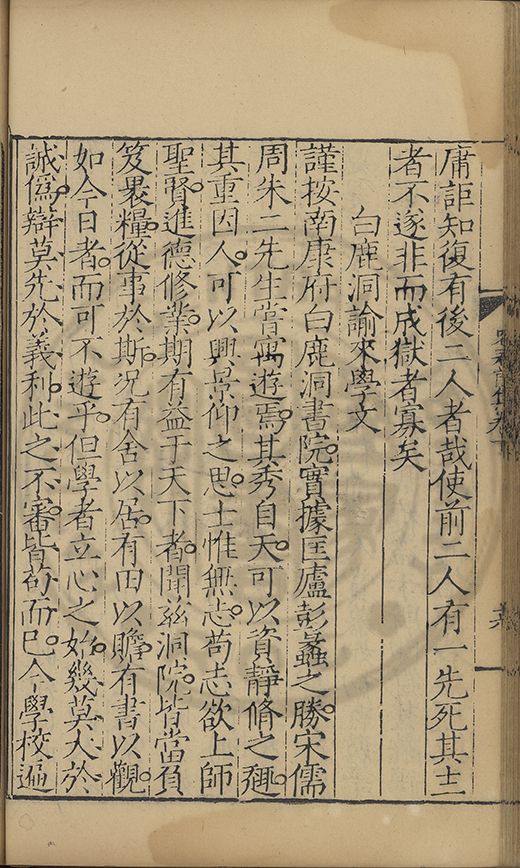 庸詎知復有後二人者哉使前二人有一先死其士
者不遂非而成獄者寡矣
白鹿洞諭來學文
謹按南康府白鹿洞書院實據匡廬彭蠡之勝宋儒
周朱二先生嘗寓遊焉其秀自天可以資靜脩之趣
其重因人可以興景仰之思士惟無志苟志欲上師
聖賢進德修業期有益于天下者聞茲洞院皆當負
笈裹糧從事於斯況有舍以居有田以贍有書以觀
如今日者而可不遊乎但學者立心之始幾莫大於
誠偽辯莫先於義利此之不審皆苟而已今學校遍